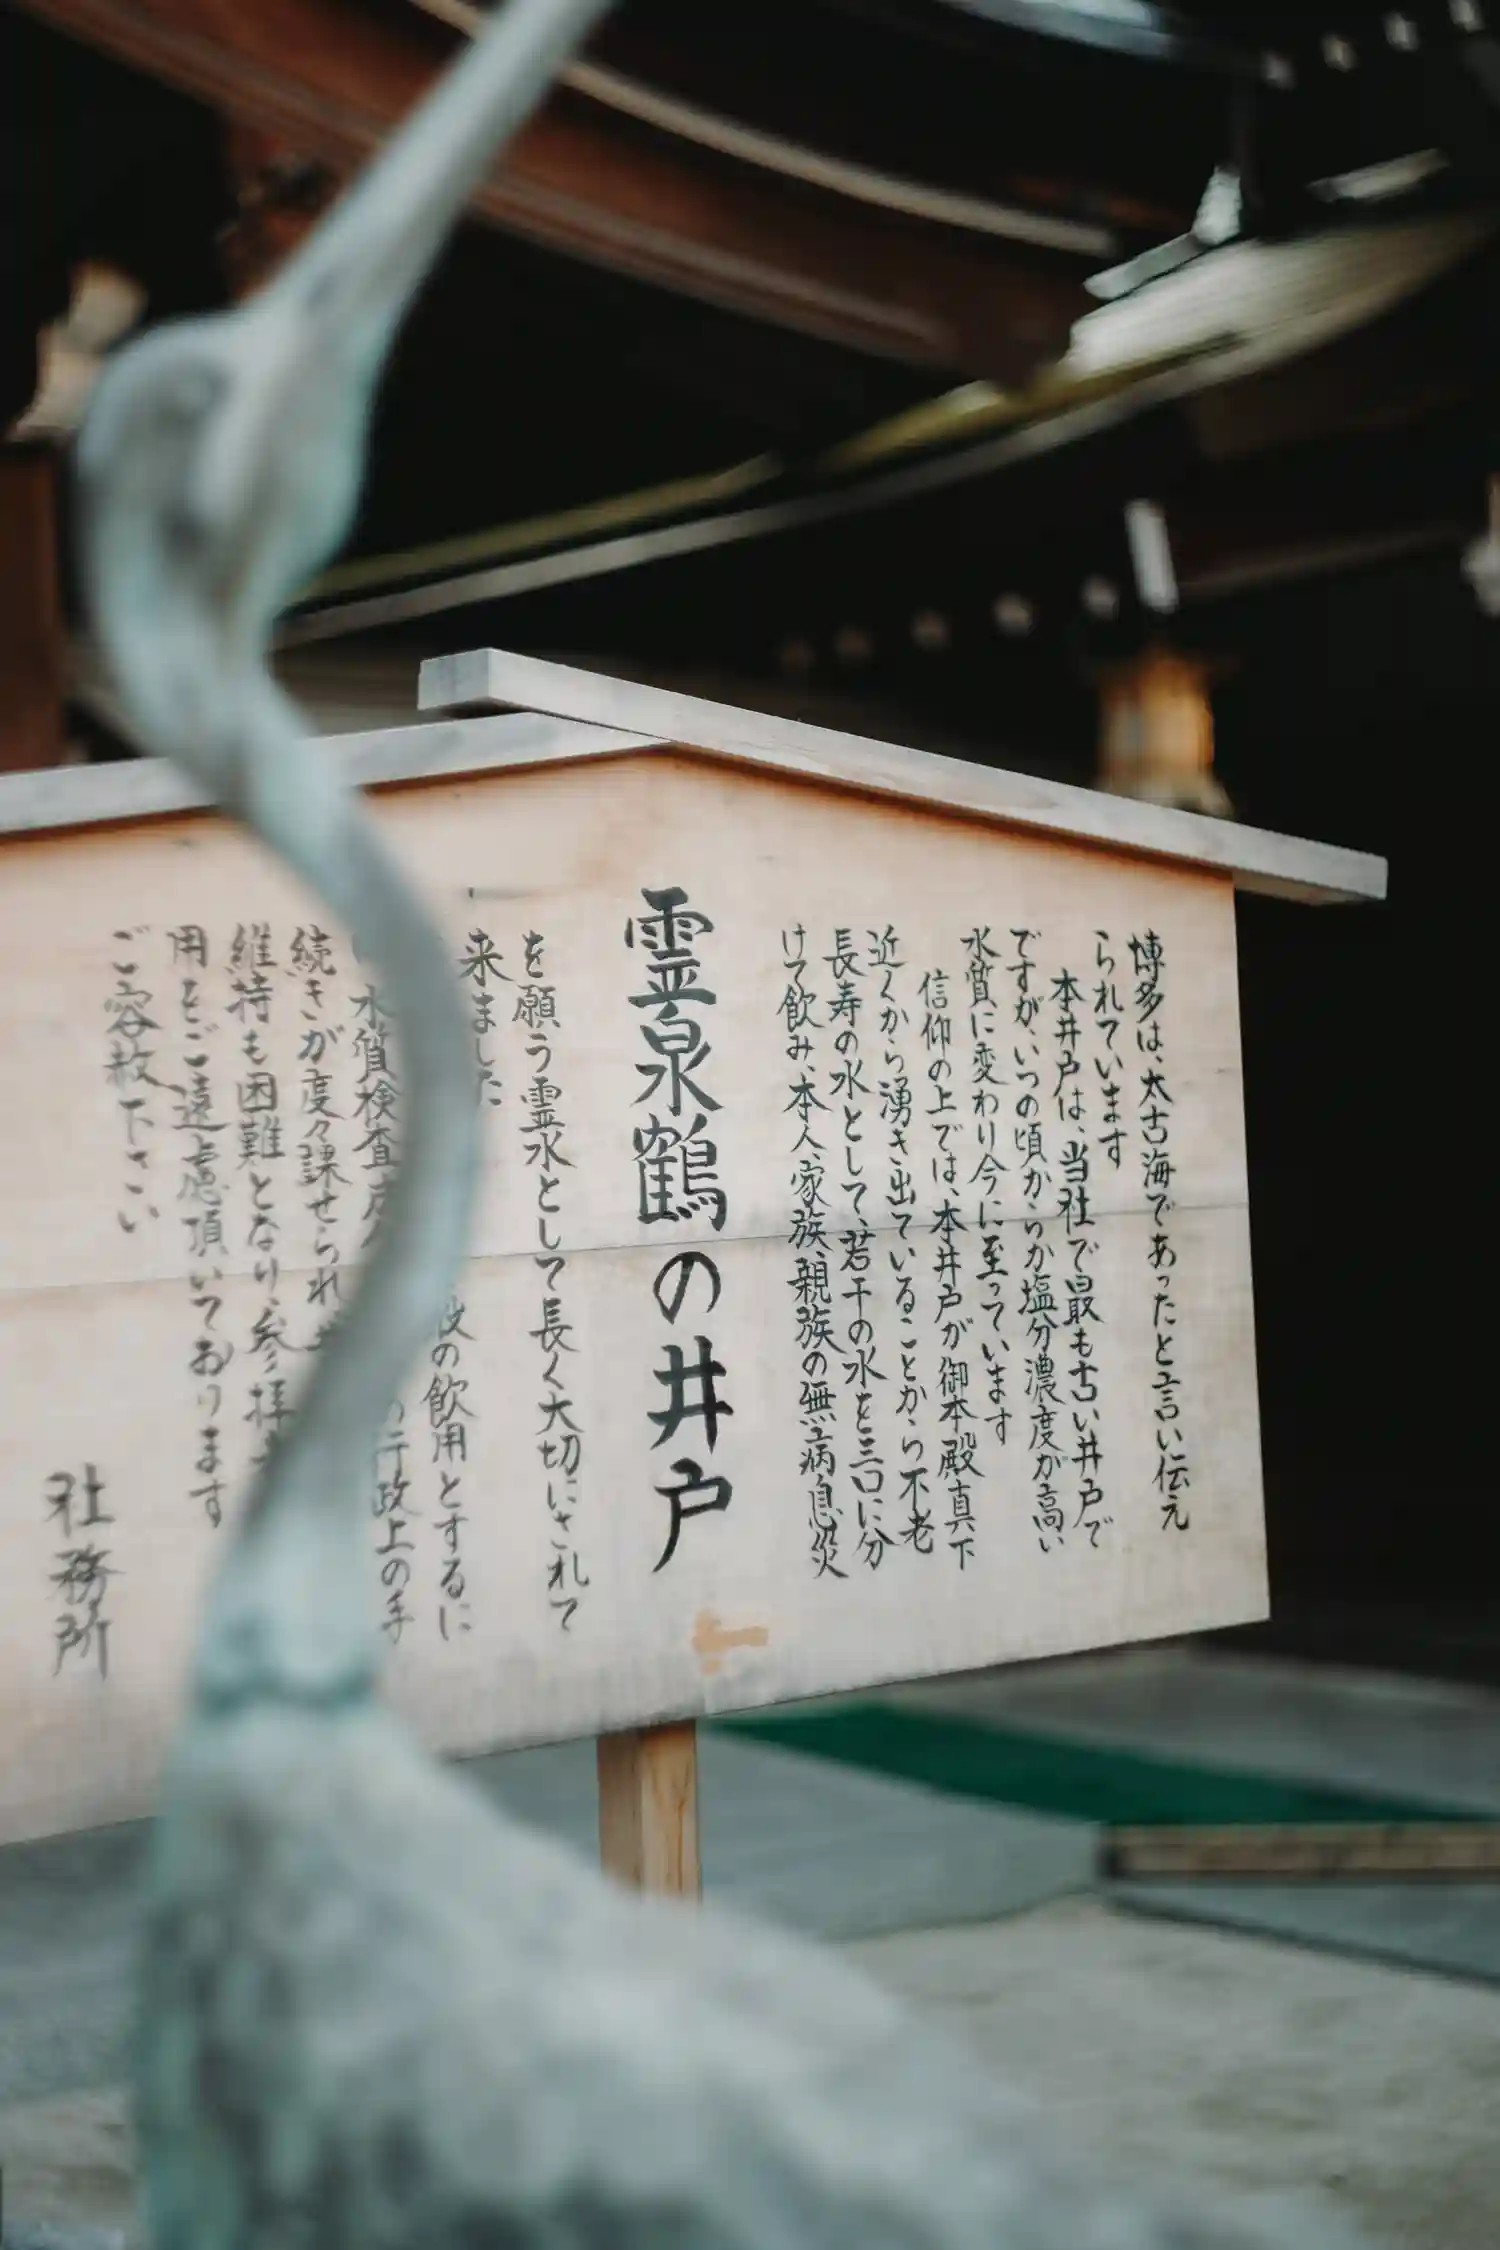 博多は、太古海であったと言い伝え
られています
本井戸は、当社で最も古い井戸で
ですが、いつの頃からか塩分濃度が高い
水質に変わり今に至っています
信仰の上では、本井戸が御本殿真下
近くから湧き出ていることから不老
長寿の水として、若干の水を三口に分
けて飲み、本人、家族、親族の無病息災
霊泉鶴の井戸
を願う霊水として長く大切にされて
来ました
般の飲用とするに
水質検査 の行政上の手
続きが度々課せられ
維持も困難となり、参拝
用をご遠慮頂いております
ご容赦下さい
社務所